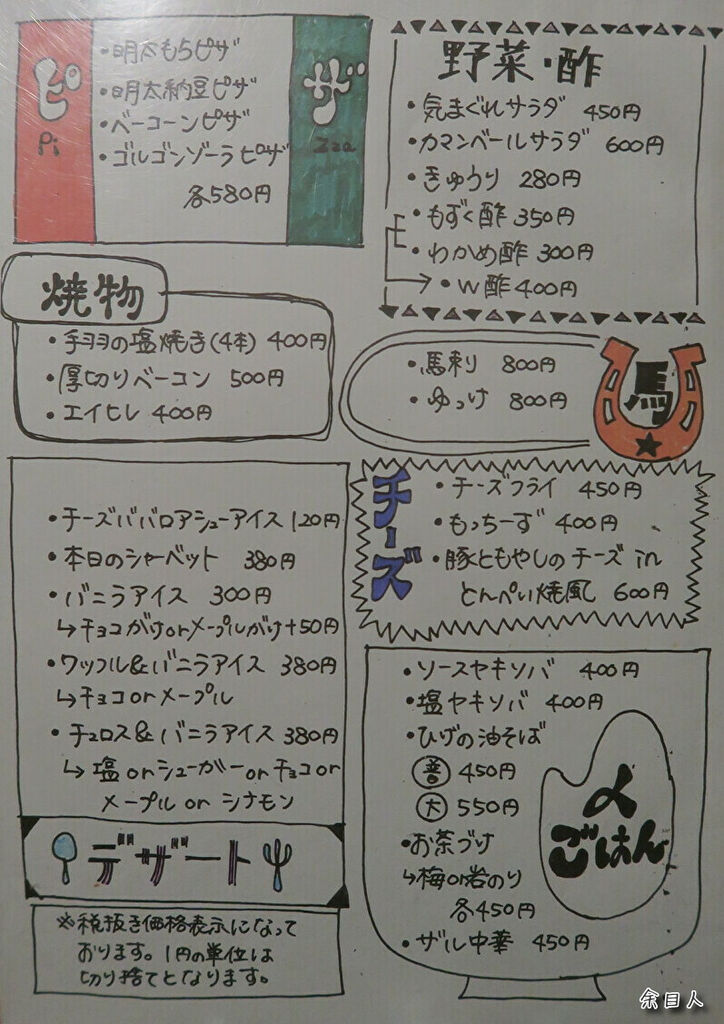 ピ
Pi
・明太もちピザ
・明太納豆ピザ
・ベーコーンピザ
・ゴルゴンゾーラピザ
各580円
ザ
Zza
野菜・酢
・気まぐれサラダ 450円
・カマンベールサラダ 600円
・きゅうり 280円
・もずく酢 350円
・わかめ酢 300円
→・W酢 400円
焼物
・手羽の塩焼き(4本) 400円
・厚切りベーコン 500円
・エイヒレ 400円
・馬刺 800円
・ゆっけ 800円
馬
チーズ
・チーズフライ 450円
・もっちーず 400円
・豚ともやしのチーズin
とんぺい焼風 600円
・チーズババロアシューアイス 120円
・本日のシャーベット 380円
・バニラアイス 300円
↳チョコがけorメープルがけ+50円
・ワッフル&バニラアイス 380円
↳チョコorメープル
・チュロス&バニラアイス 380円
↳塩orシューガーorチョコor
メープルorシナモン
デザート
※税抜き価格表示になって
おります。1円の単位は
切り捨てとなります。
・ソースヤキソバ 400円
・塩ヤキソバ 400円
・ひげの油そば
普 450円
大 550円
・お茶づけ
↳梅or岩のり
各450円
・ザル中華 450円
〆
ごはん
余目人